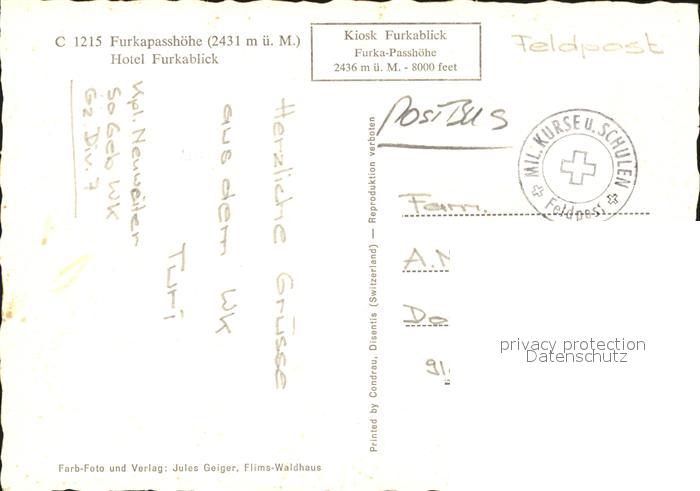 C 1215 Furkapasshöhe (2431 m ü. M.)
Hotel Furkablick
Kiosk Furkablick
Furka-Passhöhe
2436 m ü. M. - 8000 feet
Feldpost
PostBus
MIL. KURSE U. SCHULEN
Feldpost
Kpl. Neuweiler
So Geb WK
Gz Div. 7
Herzliche Grüsse
aus dem WK
Turi
Printed by Condrau, Disentis (Switzerland) — Reproduktion verboten
Fam.
A.
Do
91
privacy protection
Datenschutz
Farb-Foto und Verlag: Jules Geiger, Flims-Waldhaus